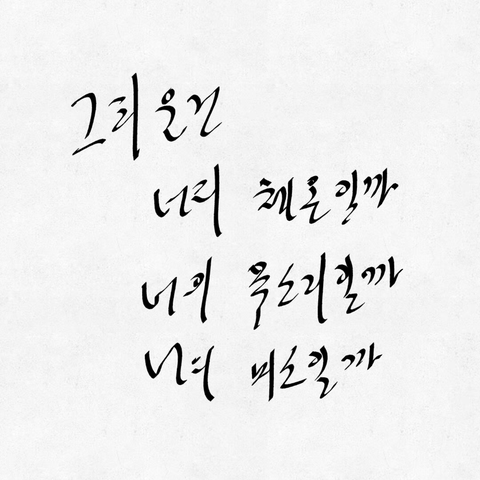 그리운건
너의 체온일까
너의 목소리일까
너의 미소일까